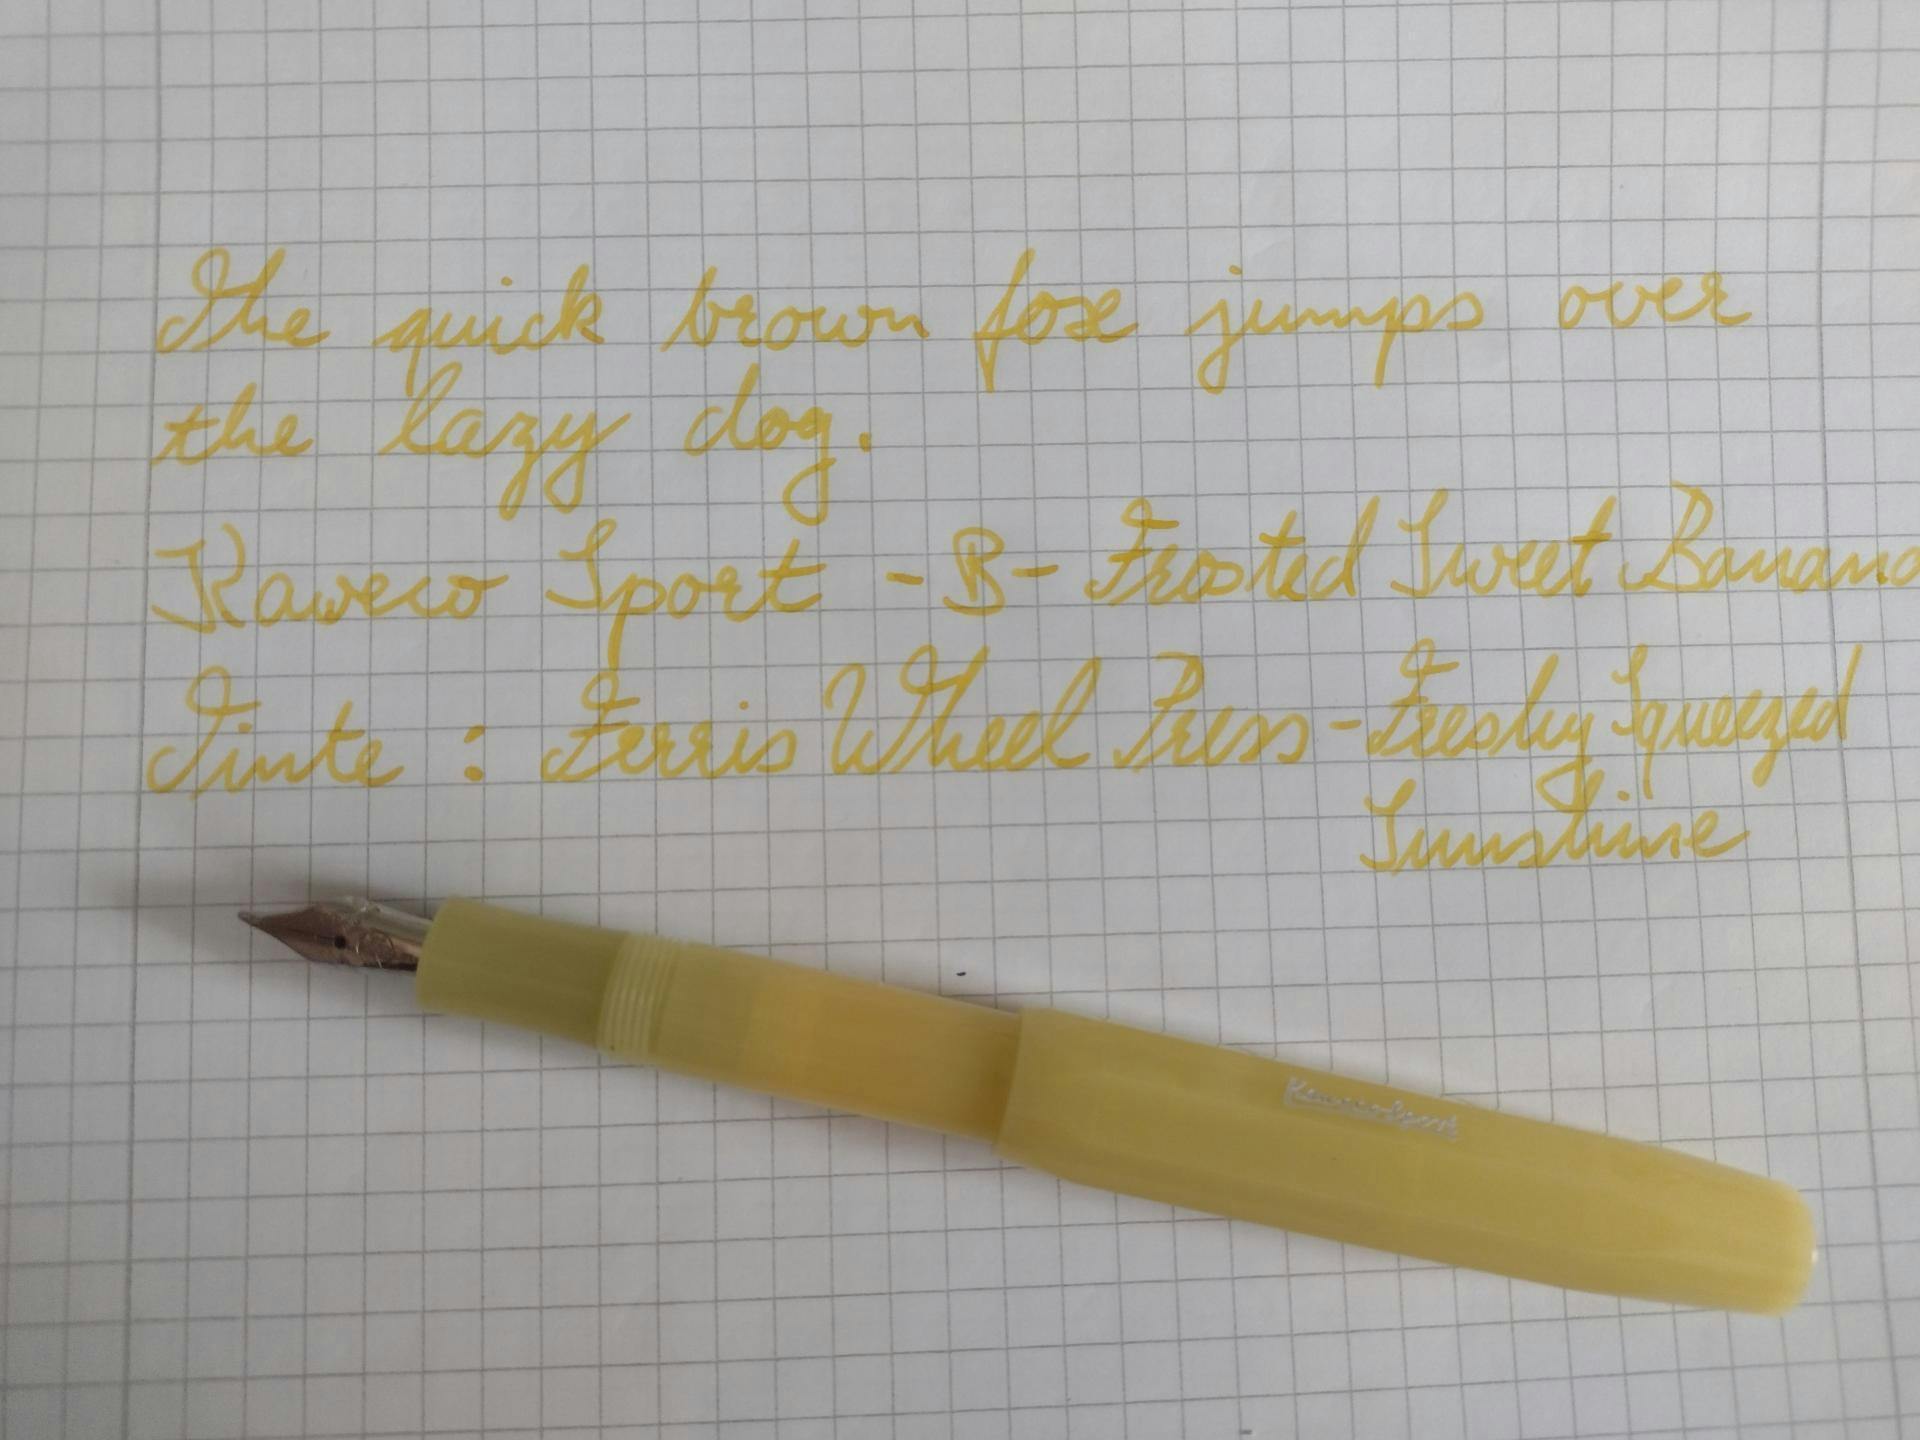 The quick brown fox jumps over
the lazy dog.
Kaweco Sport - B - Frosted Sweet Banana
Tinte : Ferris Wheel Press - Freshly Squeezed
Sunshine
Kaweco Sport